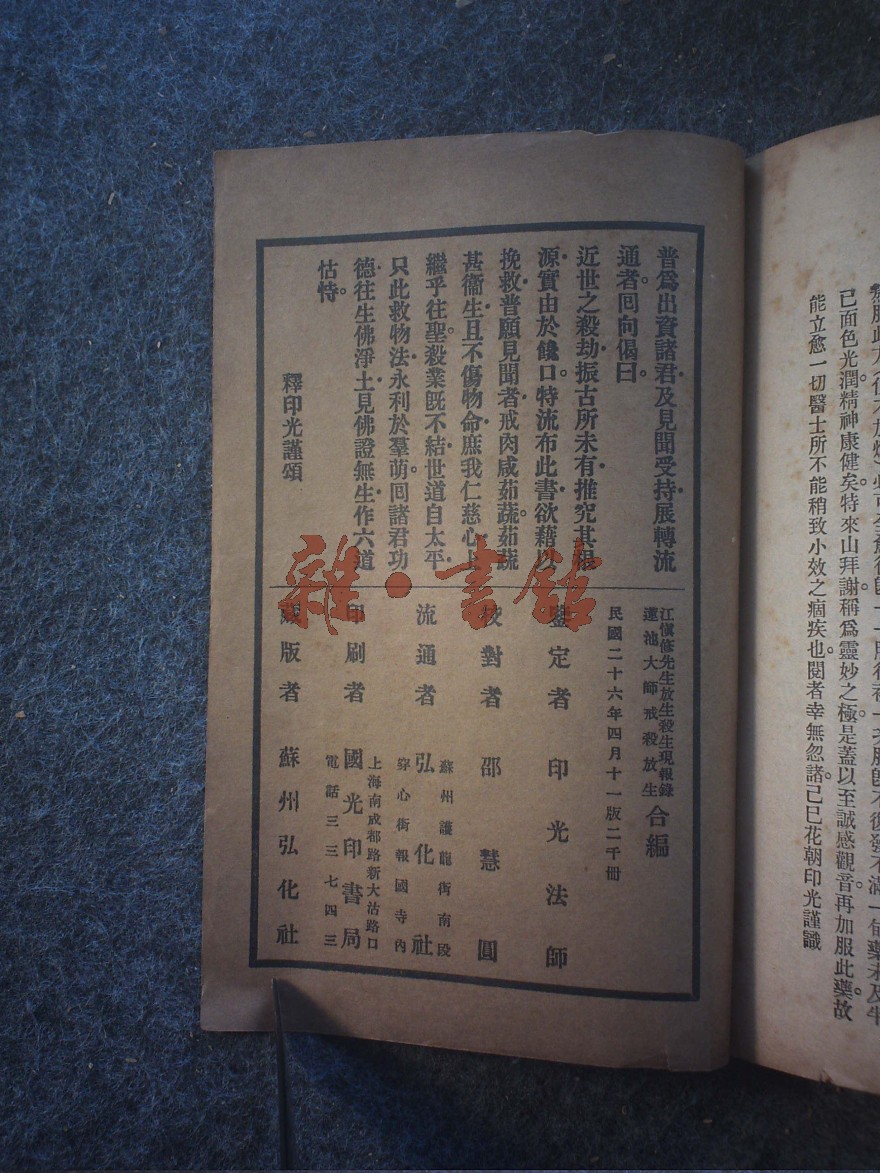 能立愈一切醫士所不能稍致小效之痼疾也。閱者幸無忽諸。己巳花朝印光謹識
已。面色光潤。精神康健矣。特來山拜謝。稱爲靈妙之極。是蓋以至誠感觀音。再加服此藥。故
普爲出資諸君及見聞受持展轉流
通者。回向偈曰。
近世之殺劫振古所未有推究其根
源實由於饞口特流布此書欲藉以
挽救普願見聞者戒肉咸茹蔬茹蔬
甚衞生且不傷物命庶我仁慈心上
繼乎往聖殺業旣不結世道自太平
只此救物法永利於羣萌。回諸君功
德往生佛淨土見佛證無生作六道
怙恃。
釋印光謹頌
江愼修先生放生殺生現報錄
蓮池大師戒殺放生
合編
民國二十六年四月十一版二千冊
鑒定者 印光法師
校對者 邵慧圓
流通者 弘化社
蘇州護龍街南段
穿心街報國寺內
印刷者 國光印書局
上海南成都路新大沽路口
電話三三七四三
藏版者 蘇州弘化社
雜·書館